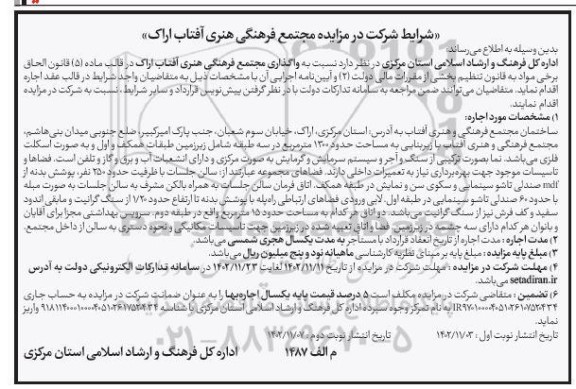 «شرایط شرکت در مزایده مجتمع فرهنگی هنری آفتاب اراک»
بدین وسیله به اطلاع می‌رساند:
اداره کل فرهنگ و ارشاد اسلامی استان مرکزی در نظر دارد نسبت به واگذاری مجتمع فرهنگی هنری آفتاب اراک در قالب ماده (۵) قانون الحاق
برخی مواد به قانون تنظیم بخشی از مقررات مالی دولت (۲) و آیین‌نامه اجرایی آن با مشخصات ذیل به متقاضیان واجد شرایط در قالب عقد اجاره
اقدام نماید. متقاضیان می‌توانند ضمن مراجعه به سامانه تدارکات دولت با در نظر گرفتن پیش‌نویس قرارداد و سایر شرایط، نسبت به شرکت در مزایده
اقدام نمایند.
۱) مشخصات مورد اجاره:
ساختمان مجتمع فرهنگی و هنری آفتاب به آدرس: استان مرکزی، اراک، خیابان سوم شعبان، جنب پارک امیرکبیر، ضلع جنوبی میدان بنی‌هاشم،
مجتمع فرهنگی و هنری آفتاب با زیربنایی به مساحت حدود ۱۳۰۰ مترمربع در سه طبقه شامل زیرزمین طبقات همکف و اول و به صورت اسکلت
فلزی می‌باشد. نما بصورت ترکیبی از سنگ و آجر و سیستم سرمایش و گرمایش به صورت مرکزی و دارای انشعابات آب و برق و گاز و تلفن است. فضاها و
تاسیسات موجود جهت بهره‌برداری نیاز به تعمیرات داخلی دارند. فضاهای مجموعه عبارتند از: سالن جلسات با ظرفیت حدود ۲۵۰ نفر، پوشش بدنه از
mdf صندلی تاشو سینمایی و سکوی سن و نمایش در طبقه همکف. اتاق فرمان سالن جلسات به همراه بالکن مشرف به سالن جلسات به صورت مبله
با حدود ۶۰ صندلی تاشو سینمایی در طبقه اول. لابی ورودی فضاهای ارتباطی راه‌پله با پوشش بدنه تا ارتفاع حدود ۱/۲۰ از سنگ گرانیت و مابقی اندود
سفید و کف فرش نیز از سنگ گرانیت می‌باشد. دو اتاق هر کدام به مساحت حدود ۱۵ مترمربع واقع در طبقه دوم. سرویس بهداشتی مجزا برای آقایان
و بانوان هر کدام دارای سه چشمه در زیرزمین. فضا و اتاق تعبیه شده در زیرزمین جهت تاسیسات مکانیکی و نحوه دسترسی به سالن از داخل مجتمع.
۲) مدت اجاره: مدت اجاره از تاریخ انعقاد قرارداد با مستاجر به مدت یکسال هجری شمسی می‌باشد.
۳) مبلغ پایه مزایده: مبلغ پایه بر مبنای نظریه کارشناسی ماهیانه نود و پنج میلیون ریال می‌باشد.
۴) مهلت شرکت در مزایده: مهلت شرکت در مزایده از تاریخ ۱۴۰۲/۱۱/۱۱ لغایت ۱۴۰۲/۱۱/۲۳ در سامانه تدارکات الکترونیکی دولت به آدرس
setadiran.ir می‌باشد.
۶) تضمین: متقاضی شرکت در مزایده مکلف است ۵ درصد قیمت پایه یکسال اجاره‌بها را به عنوان ضمانت شرکت در مزایده به حساب جاری
به نام تمرکز وجوه سپرده اداره کل فرهنگ و ارشاد اسلامی استان مرکزی با شناسه واریز
نماید.
تاریخ انتشار نوبت اول: ۱۴۰۲/۱۱/۰۳ تاریخ انتشار نوبت دوم: ۱۴۰۲/۱۱/۰۷
م الف ۱۴۸۷ اداره کل فرهنگ و ارشاد اسلامی استان مرکزی